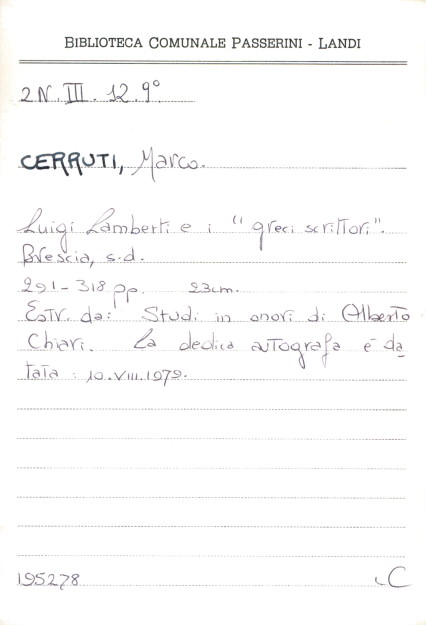 BIBLIOTECA COMUNALE PASSERINI - LANDI
2N.III.12.9°
CERRUTI, Marco.
Luigi Lamberti e i "greci scrittori".
Brescia, s.d.
291-318 pp. 23cm.
Estr. da: Studi in onori di Alberto
Chiari. La dedica autografa è da
tata: 10.VIII.1979.
195278
C